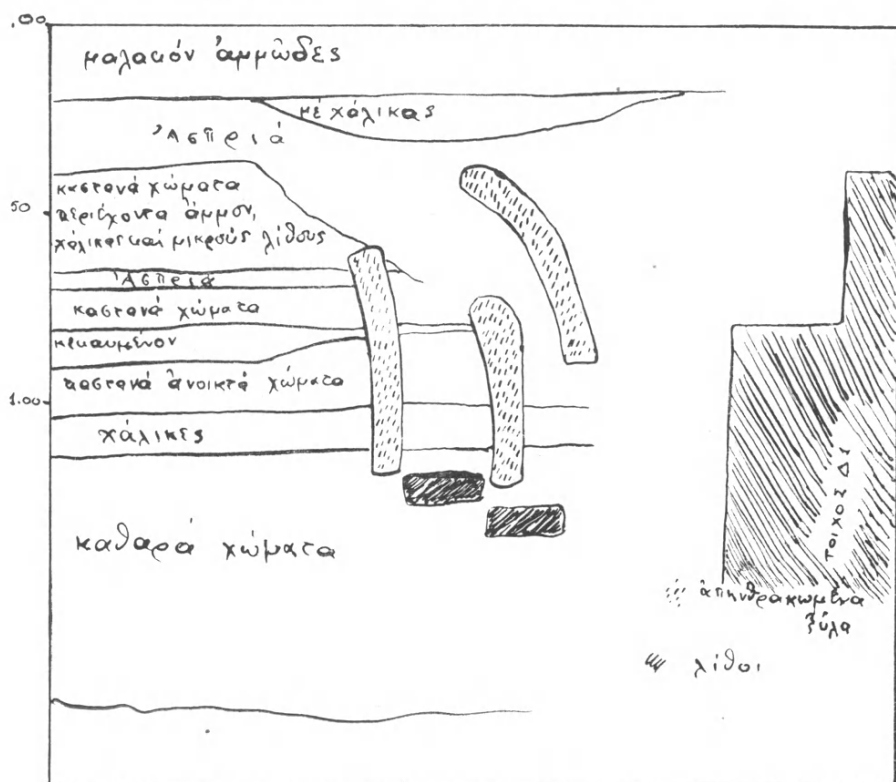 .00
μαλακόν ἀμμῶδες
μὲ χάλικας
Ἀσπριά
καστανά χώματα
περιέχοντα ἄμμον,
χάλικας καί μικρούς λίθους
50
Ἀσπριά
καστανά χώματα
κεκαυμένον
καστανά ἀνοικτά χώματα
1.00
χάλικες
καθαρά χώματα
ΤΟΙΧΟΣ
ἀπηνθρακωμένα
ξύλα
λίθοι